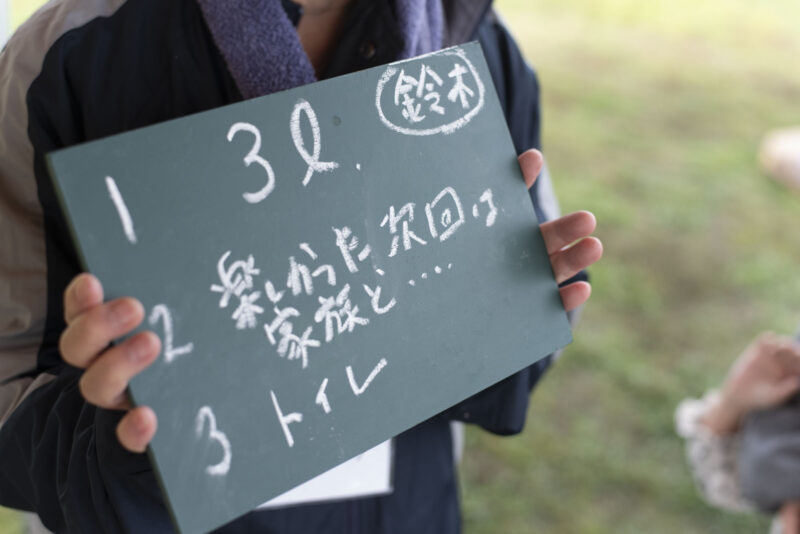 鈴木
1 3ℓ.
2 楽しかった次回は
家族と....
3 トイレ